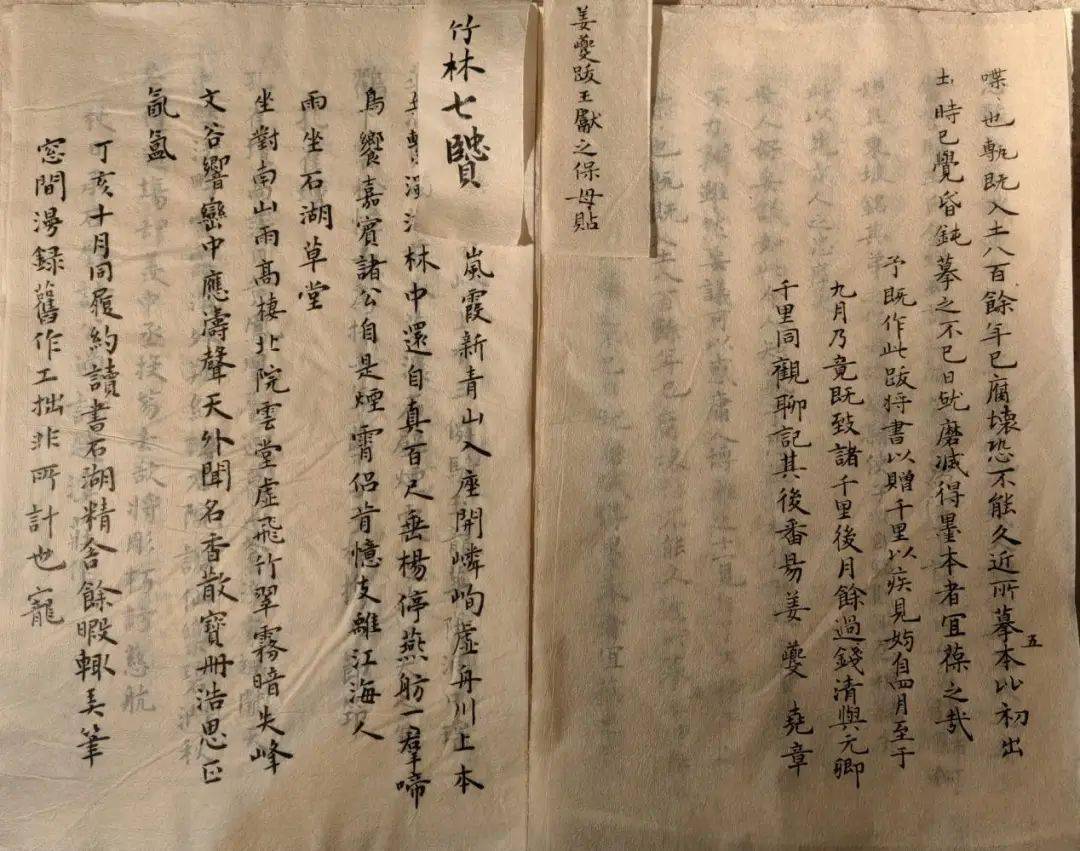 喋〻也甎既入土八百餘年已腐壞恐不能久近所摹本比初出
土時已覺昏鈍摹之不已日就磨滅得墨本者宜葆之哉
五
予既作此跋将書以贈千里以疾見妨自四月至于
九月乃竟既致諸千里後月餘過錢清與元卿
千里同觀聊記其後番昜姜夔堯章
姜夔跋王獻之保母貼
竹林七賢
嵐霞新青山入座開嶙峋虛舟川上本
林中還自真百尺垂楊停燕舫一羣啼
鳥饗嘉賓諸公自是煙霄侶肯憶支離江海人
雨坐石湖草堂
坐對南山雨高棲北院雲堂虛飛竹翠霧暗失峰
文谷響巒中應濤聲天外聞名香散寶冊浩思正
氤氳
丁亥十月同履約讀書石湖精舍餘暇輙弄筆
窓間漫録舊作工拙非所計也寵